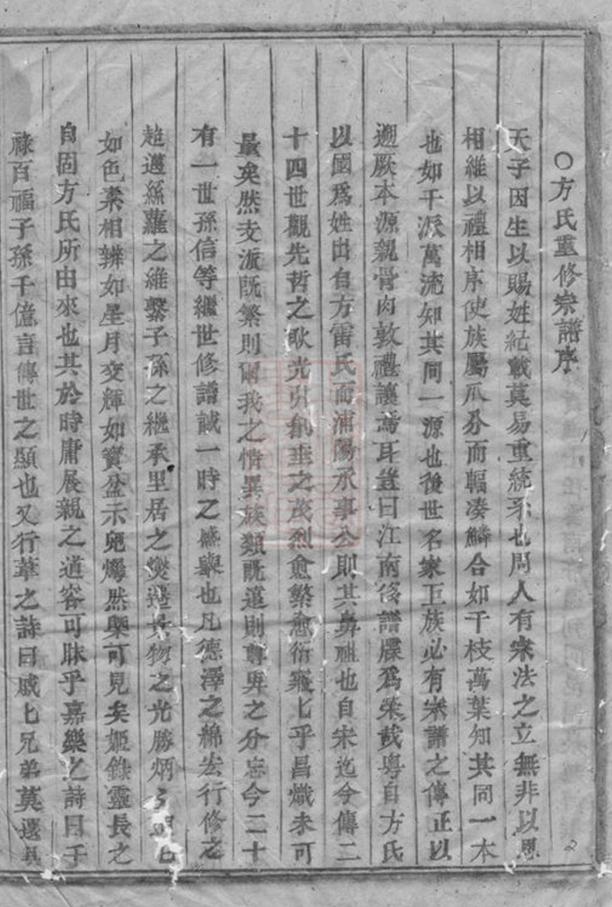 ○方氏重修宗譜序
天子因生以賜姓紀載莫易重統系也周人有宗法之立無非以恩
相維以禮相序使族屬瓜分而輻凑鱗合如千枝萬葉知其同一本
也如千派萬流知其同一源也後世名家巨族必有宗譜之傳正以
遡厥本源親骨肉敦禮讓焉耳豈曰江南後譜牒為榮哉粵自方氏
以國為姓出自方雷氏而浦陽承事公則其鼻祖也自宋迄今傳二
十四世觀先哲之耿光與創垂之茂烈愈繁愈衍駸匕乎昌熾未可
量矣然支派既繁則爾我之情異族類既遠則尊卑之分忘今二十
有一世孫信等繼世修譜誠一時之盛舉也凡德澤之綿宏行修之
超邁絲蘿之維繫子孫之繼承里居之 物之光勝炳
如色素相辨如星月交輝如寶盆示兒燭然舉可見矣姬錄靈長之
自固方氏所由來也其於時庸展親之道容可昧乎嘉樂之詩曰干
祿百福子孫千億言傳世之顯也又行葦之詩曰戚匕兄弟莫遠具
2